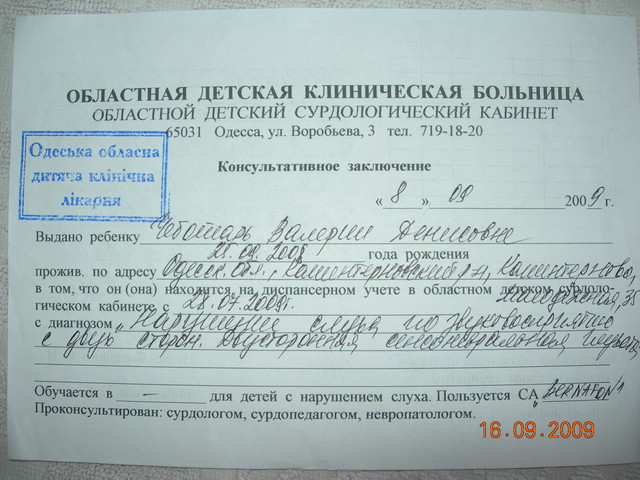 ОБЛАСТНАЯ ДЕТСКАЯ КЛИНИЧЕСКАЯ БОЛЬНИЦА
ОБЛАСТНОЙ ДЕТСКИЙ СУРДОЛОГИЧЕСКИЙ КАБИНЕТ
65031 Одесса, ул. Воробьева, 3 тел. 719-18-20
Одеська обласна
дитяча клінічна
лікарня
Консультативное заключение
« 8 » 09 2009 г.
Выдано ребенку Чеботарь Валерии Денисовне
года рождения
прожив. по адресу Одесск. обл., Коминтерновский р-н, Коминтерново,
в том, что он (она) находится на диспансерном учете в областном детском сурдоло-
гическом кабинете с 28.07.2009г.
с диагнозом „Нарушение слуха по звуковосприятию
с двух сторон. Двусторонняя сенсоневральная
Обучается в — для детей с нарушением слуха. Пользуется СА „BERNAFON"
Проконсультирован: сурдологом, сурдопедагогом, невропатологом.
16.09.2009